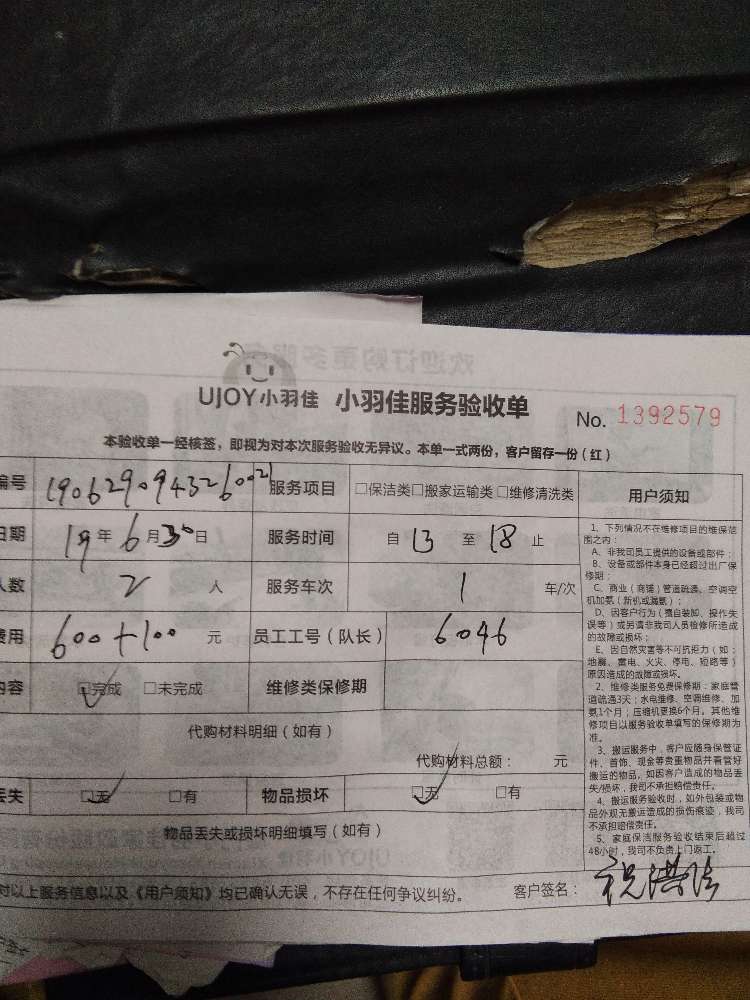 欢迎订购更多服
UJOY小羽佳 小羽佳服务验收单 No. 1392579
本验收单一经核签，即视为对本次服务验收无异议。本单一式两份，客户留存一份（红）
编号 1906290943260021 服务项目 □保洁类□搬家运输类□维修清洗类 用户须知
日期 19年6月30日 服务时间 自 13 至 18 止
人数 2 人 服务车次 1 车/次
费用 600+100 元 员工工号（队长） 6046
内容 □完成 □未完成 维修类保修期
代购材料明细（如有）
代购材料总额： 元
丢失 □无 □有 物品损坏 □无 □有
物品丢失或损坏明细填写（如有）
对以上服务信息以及《用户须知》均已确认无误，不存在任何争议纠纷。 客户签名：
1、下列情况不在维修项目的维保范
围之内：
A、非我司员工提供的设备或部件；
B、设备或部件本身已经超过出厂保
修期；
C、商业（商铺）管道疏通、空调空
机加氨（新机或漏氨）；
D、因客户行为（擅自装卸、操作失
误等）或另请非我司人员检修所造成
的故障或损坏；
E、因自然灾害等不可抗拒力（如：
地震、雷电、火灾、停电、短路等）
原因造成的故障或损坏。
2、维修类服务免费保修期：家庭管
道疏通3天；水电维修、空调维修、加
氨1个月；压缩机更换6个月。其他维
修项目以服务验收单填写的保修期为
准。
3、搬运服务中，客户应随身保管证
件、首饰、现金等贵重物品并看管好
搬运的物品，如因客户造成的物品丢
失/损坏，我司不承担赔偿责任。
4、搬运服务验收时，如外包装或物
品外观无搬运造成的损伤痕迹，我司
不承担赔偿责任。
5、家庭保洁服务验收结束后超过
48小时，我司不负责上门返工。